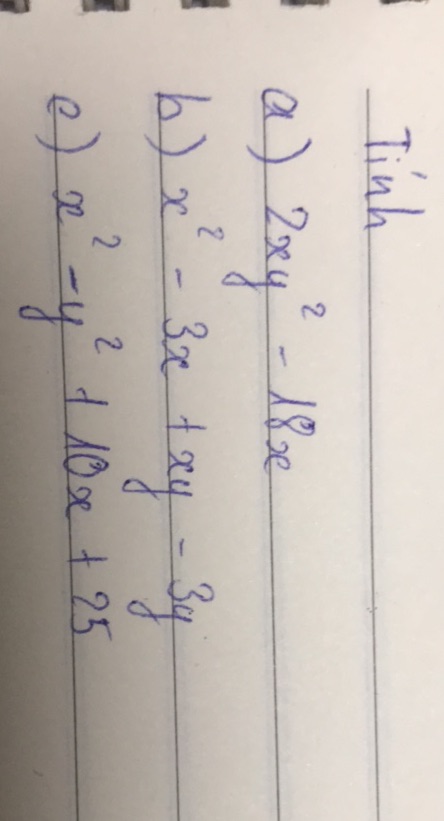 Tính
a) 2xy² - 18x
b) x² - 3x + xy - 3y
c) x² - y² + 10x + 25